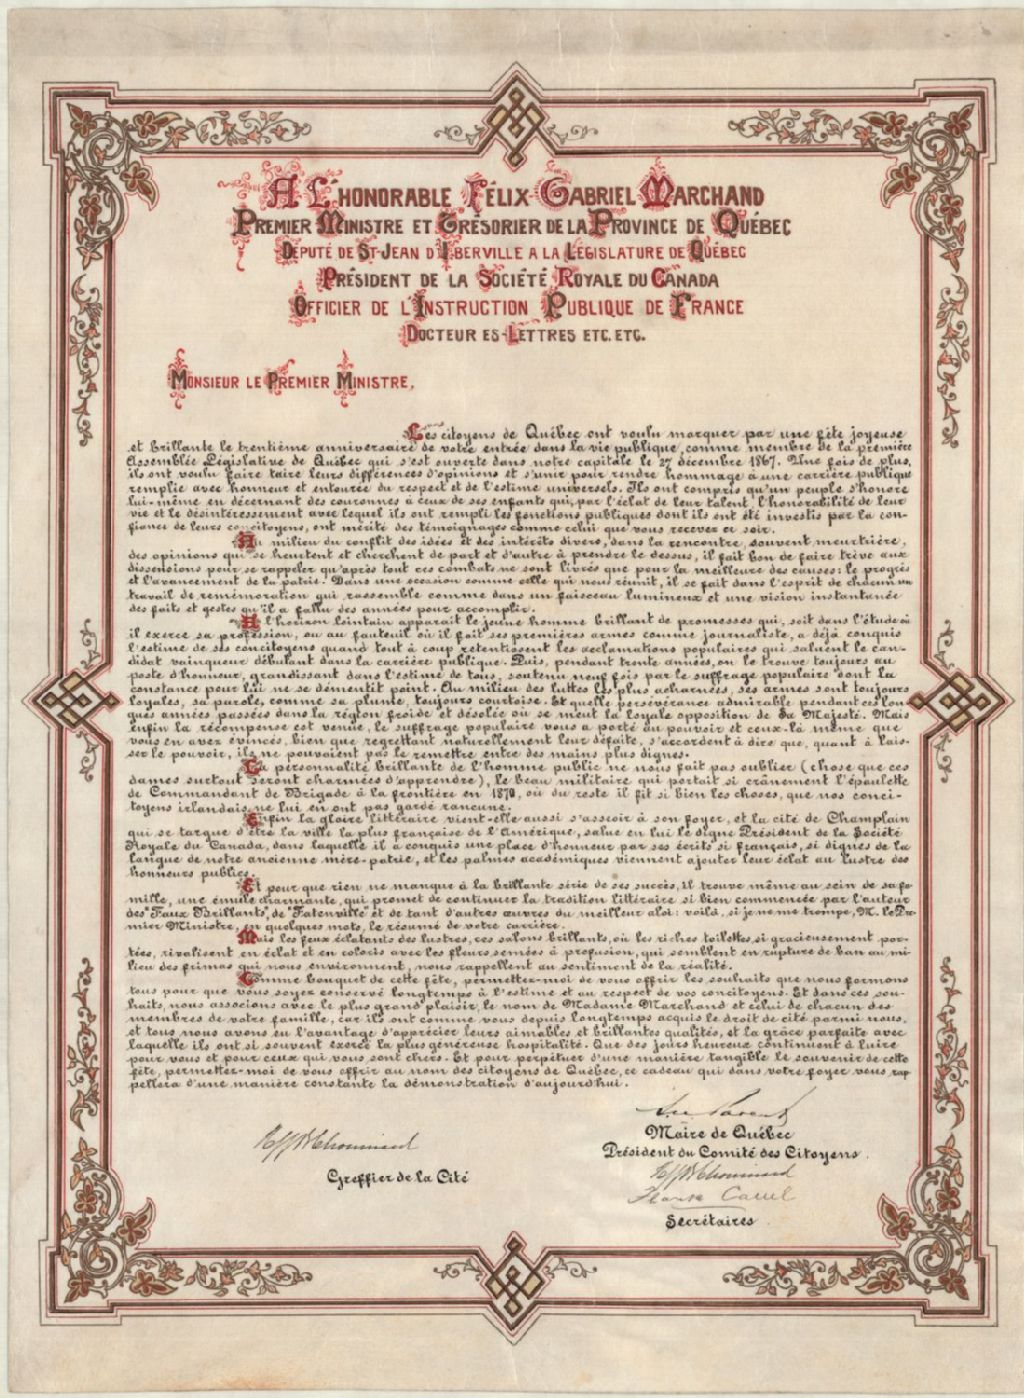 A L'HONORABLE FÉLIX GABRIEL MARCHAND
PREMIER MINISTRE ET TRÉSORIER DE LA PROVINCE DE QUÉBEC
DÉPUTÉ DE ST-JEAN D'IBERVILLE A LA LÉGISLATURE DE QUÉBEC
PRÉSIDENT DE LA SOCIÉTÉ ROYALE DU CANADA
OFFICIER DE L'INSTRUCTION PUBLIQUE DE FRANCE
DOCTEUR ES-LETTRES ETC. ETC.
MONSIEUR LE PREMIER MINISTRE,
Les citoyens de Québec ont voulu marquer par une fête joyeuse
et brillante le trentième anniversaire de votre entrée dans la vie publique, comme membre de la première
Assemblée Législative de Québec qui s'est ouverte dans notre capitale le 27 décembre 1867. Une fois de plus,
ils ont voulu faire taire leurs différences d'opinions et s'unir pour rendre hommage à une carrière publique
remplie avec honneur et entourée du respect et de l'estime universels. Ils ont compris qu'un peuple s'honore
lui-même en décernant des couronnes à ceux de ses enfants qui, par l'éclat de leur talent, l'honorabilité de leur
vie et le désintéressement avec lequel ils ont rempli les fonctions publiques dont ils ont été investis par la con-
fiance de leurs concitoyens, ont mérité des témoignages comme celui que vous recevez ce soir.
Au milieu du conflit des idées et des intérêts divers, dans la rencontre, souvent meurtrière,
des opinions qui se heurtent et cherchent de part et d'autre à prendre le dessus, il fait bon de faire trève aux
dissensions pour se rappeler qu'après tout ces combats ne sont livrés que pour la meilleure des causes: le progrès
et l'avancement de la patrie. Dans une occasion comme celle qui nous réunit, il se fait dans l'esprit de chacun un
travail de remémoration qui rassemble comme dans un faisceau lumineux et une vision instantanée
des faits et gestes qu'il a fallu des années pour accomplir.
A l'horizon lointain apparaît le jeune homme brillant de promesses qui, soit dans l'étude où
il exerce sa profession, ou au fauteuil où il fait ses premières armes comme journaliste, a déjà conquis
l'estime de ses concitoyens quand tout à coup retentissent les acclamations populaires qui saluent le can-
didat vainqueur débutant dans la carrière publique. Puis, pendant trente années, on le trouve toujours au
poste d'honneur, grandissant dans l'estime de tous, soutenu neuf fois par le suffrage populaire dont la
constance pour lui ne se démentit point. Au milieu des luttes les plus acharnées, ses armes sont toujours
loyales, sa parole, comme sa plume, toujours courtoise. Et quelle persévérance admirable pendant ces lon-
gues années passées dans la région froide et désolée où se meut la loyale opposition de Sa Majesté. Mais
enfin la récompense est venue, le suffrage populaire vous a porté au pouvoir et ceux-là même que
vous en avez évincés, bien que regrettant naturellement leur défaite, s'accordent à dire que, quant à lais-
ser le pouvoir, ils ne pouvaient pas le remettre entre des mains plus dignes.
La personnalité brillante de l'homme public ne nous fait pas oublier (chose que ces
dames surtout seront charmées d'apprendre), le beau militaire qui portait si crânement l'épaulette
de Commandant de Brigade à la frontière en 1870, où du reste il fit si bien les choses, que nos conci-
toyens irlandais ne lui en ont pas gardé rancune.
Enfin la gloire littéraire vient-elle aussi s'asseoir à son foyer, et la cité de Champlain
qui se targue d'être la ville la plus française de l'Amérique, salue en lui le digne Président de la Société
Royale du Canada, dans laquelle il a conquis une place d'honneur par ses écrits si français, si dignes de la
langue de notre ancienne mère-patrie, et les palmes académiques viennent ajouter leur éclat au lustre des
honneurs publics.
Et pour que rien ne manque à la brillante série de ses succès, il trouve même au sein de sa fa-
mille, une émule charmante, qui promet de continuer la tradition littéraire si bien commencée par l'auteur
des "Faux Brillants", de "Fatenville" et de tant d'autres œuvres du meilleur aloi: voilà, si je ne me trompe, M. le Pre-
mier Ministre, en quelques mots, le résumé de votre carrière.
Mais les feux éclatants des lustres, ces salons brillants, où les riches toilettes, si gracieusement por-
tées, rivalisent en éclat et en coloris avec les fleurs semées à profusion, qui semblent en rupture de ban au mi-
lieu des frimas qui nous environnent, nous rappellent au sentiment de la réalité.
Comme bouquet de cette fête, permettez-moi de vous offrir les souhaits que nous formons
tous pour que vous soyez conservé longtemps à l'estime et au respect de vos concitoyens. Et dans ces sou-
haits, nous associons avec le plus grand plaisir le nom de Madame Marchand et celui de chacun des
membres de votre famille, car ils ont comme vous depuis longtemps acquis le droit de cité parmi nous,
et tous nous avons eu l'avantage d'apprécier leurs aimables et brillantes qualités, et la grâce parfaite avec
laquelle ils ont si souvent exercé la plus généreuse hospitalité. Que des jours heureux continuent à luire
pour vous et pour ceux qui vous sont chers. Et pour perpétuer d'une manière tangible le souvenir de cette
fête, permettez-moi de vous offrir au nom des citoyens de Québec, ce cadeau qui dans votre foyer vous rap-
pellera d'une manière constante la démonstration d'aujourd'hui.
Parent
Maire de Québec
Président du Comité des Citoyens.
Chouinard
Greffier de la Cité
Chouinard
Secrétaires.